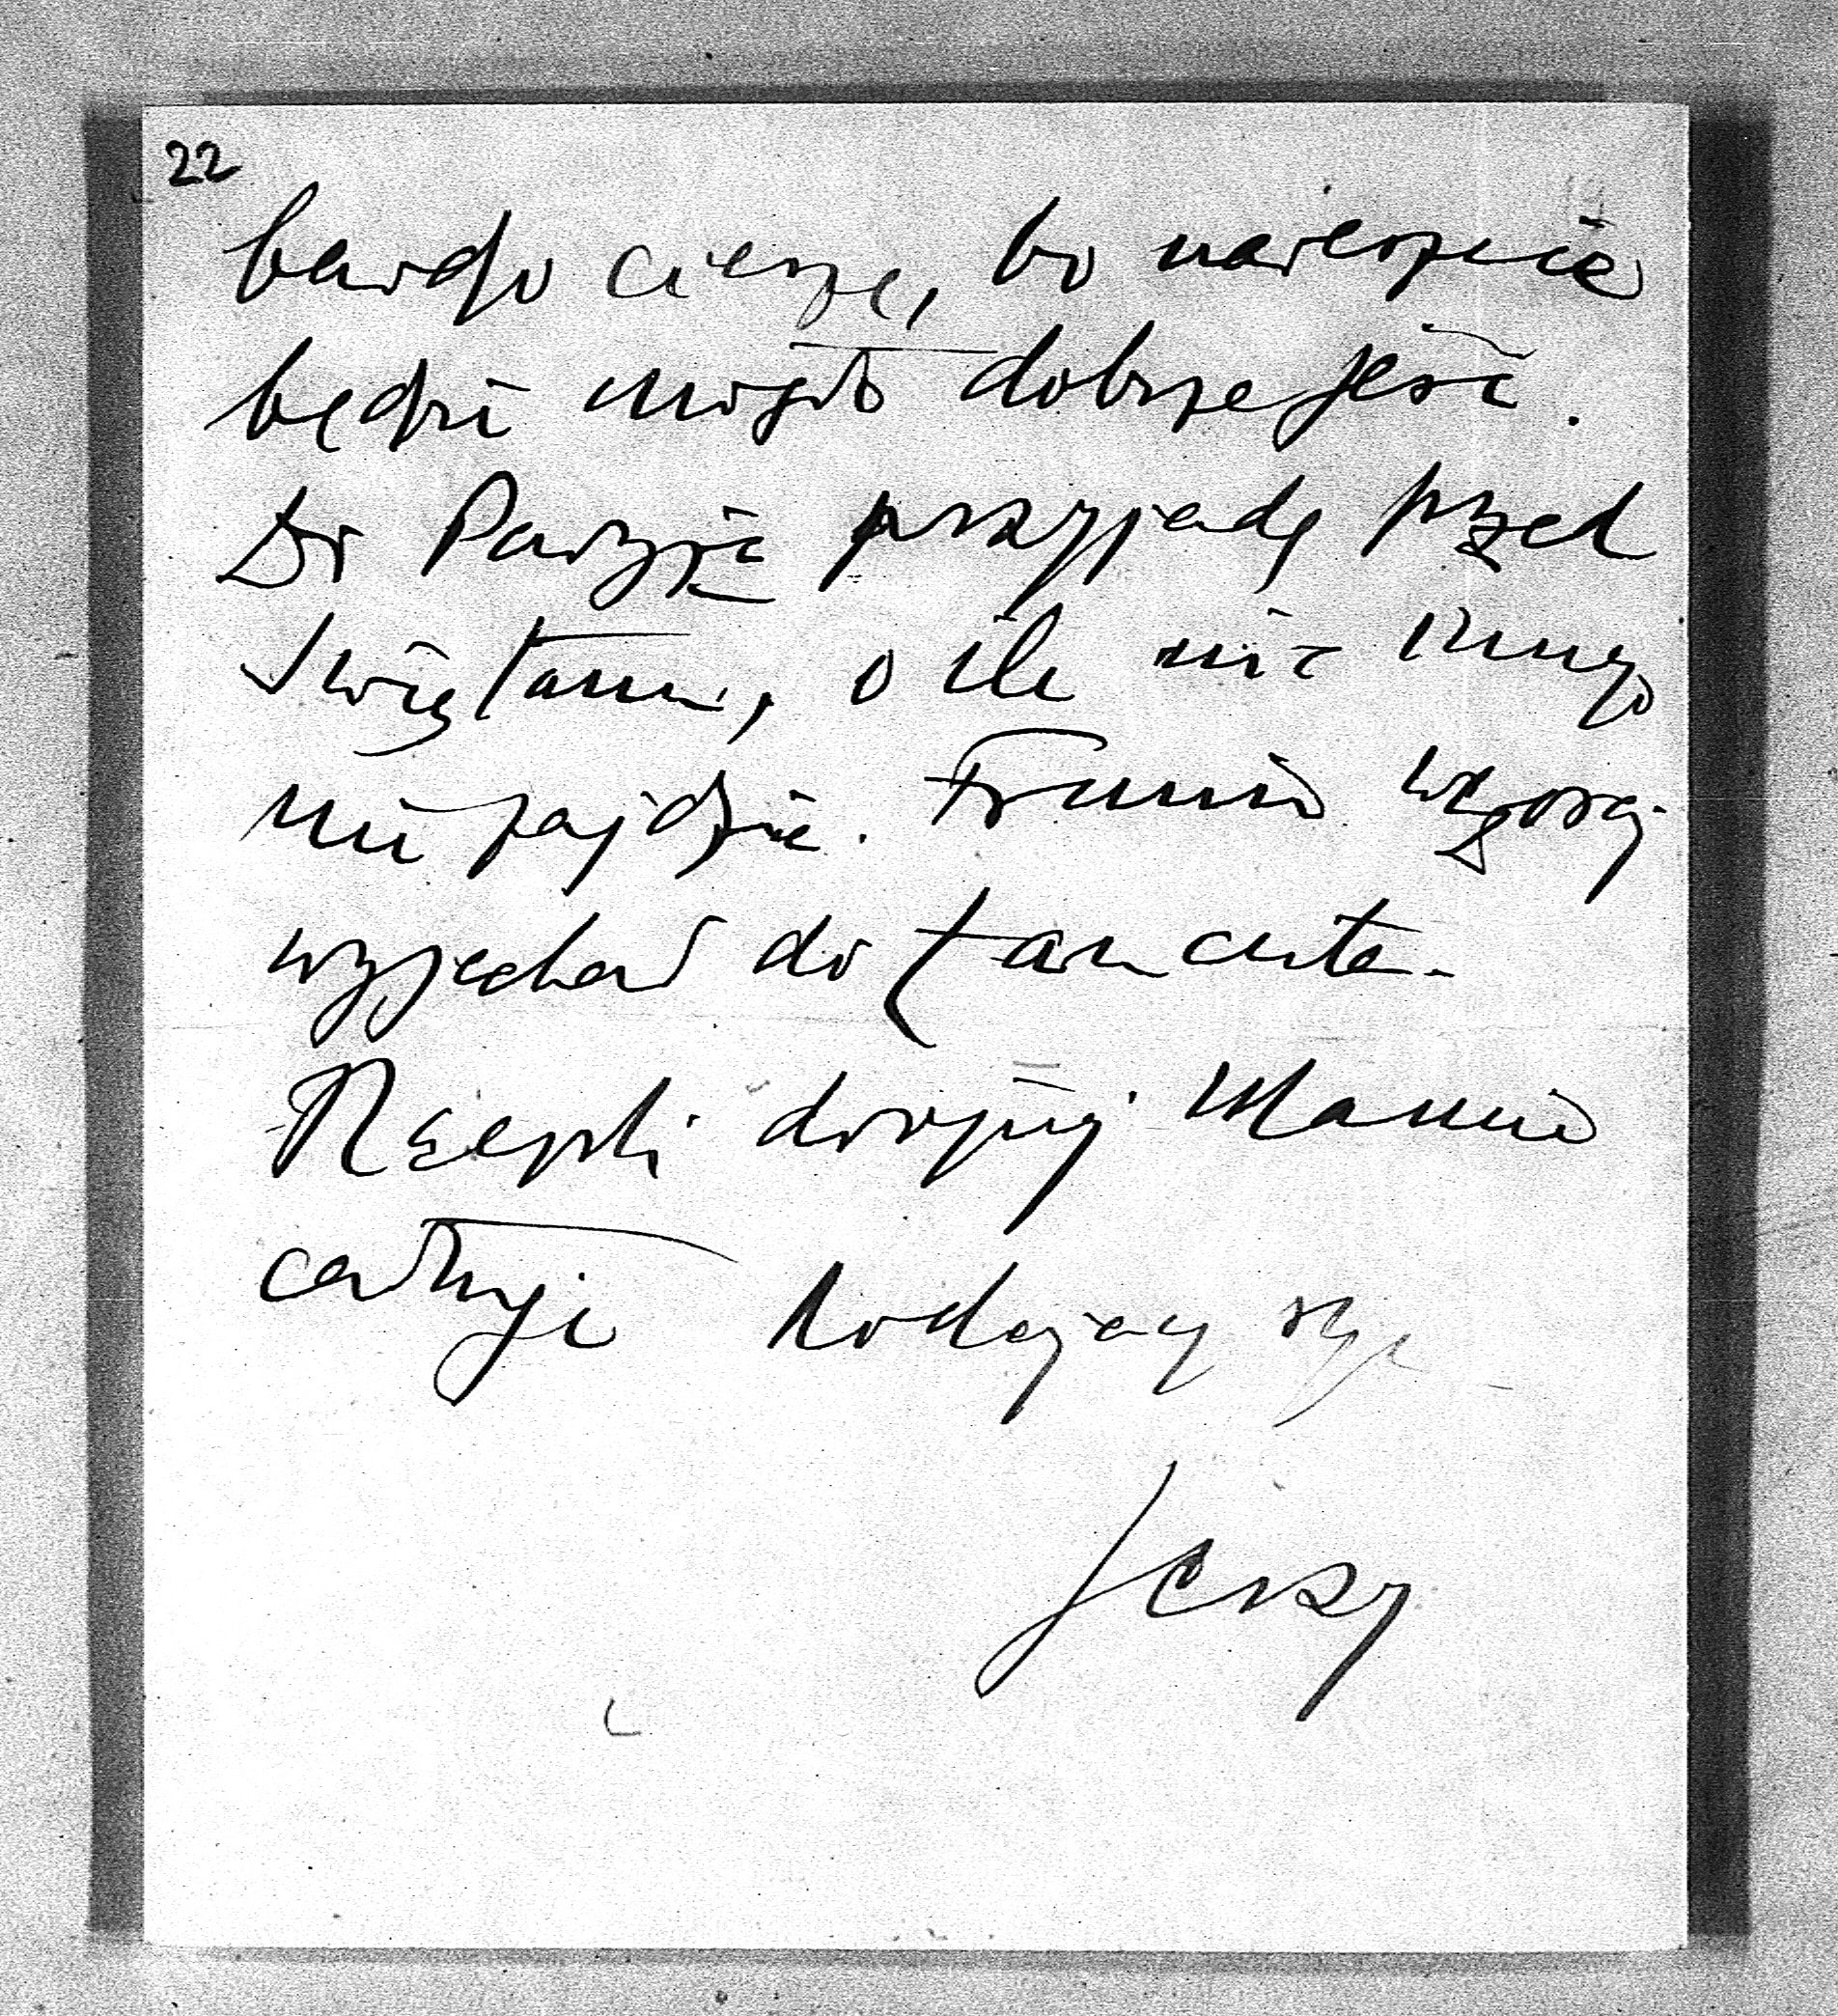 22
bardzo cieszę, bo nareszcie
będzie mogła dobrze jeść.
Do Paryża przyjadę przed
Świętami, o ile nic innego
nie zajdzie. Franio wczoraj
wyjechał do Łańcuta.
Rączki drogiej Mamie
całuję kochający syn
Jerzy